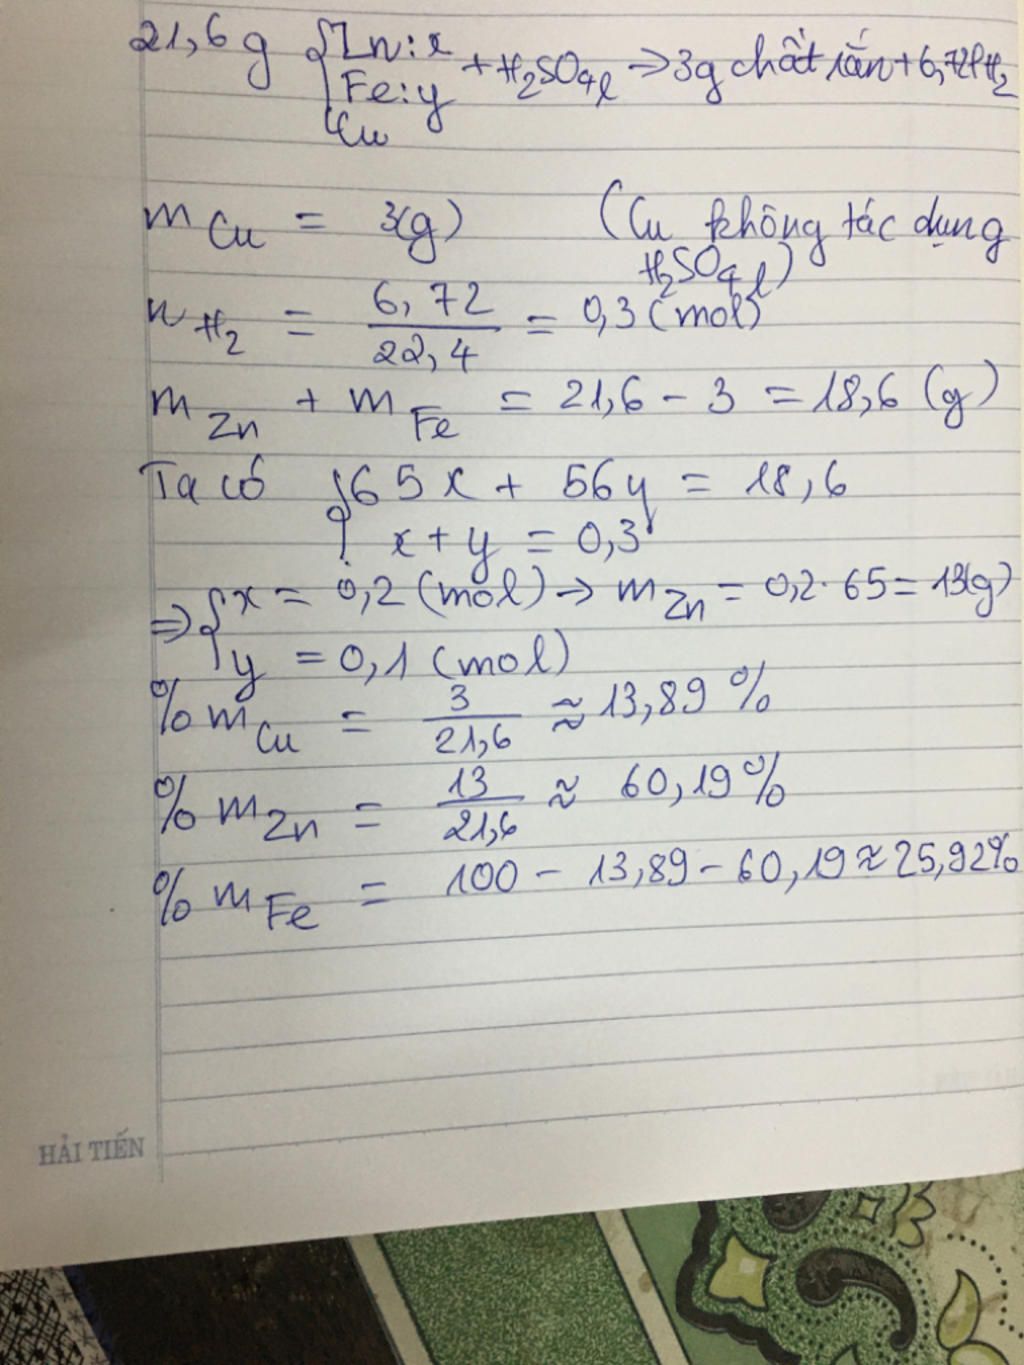 21,6g { Zn: x
Fe: y + H₂SO₄ l → 3g chất rắn + 6,72l H₂
Cu
m Cu = 3(g) (Cu không tác dụng
H₂SO₄ l)
n H₂ = 6,72 / 22,4 = 0,3 (mol)
m Zn + m Fe = 21,6 - 3 = 18,6 (g)
Ta có { 65x + 56y = 18,6
x + y = 0,3
⇒ { x = 0,2 (mol) → m Zn = 0,2 . 65 = 13(g)
y = 0,1 (mol)
% m Cu = 3 / 21,6 ≈ 13,89 %
% m Zn = 13 / 21,6 ≈ 60,19 %
% m Fe = 100 - 13,89 - 60,19 ≈ 25,92%
HẢI TIẾN